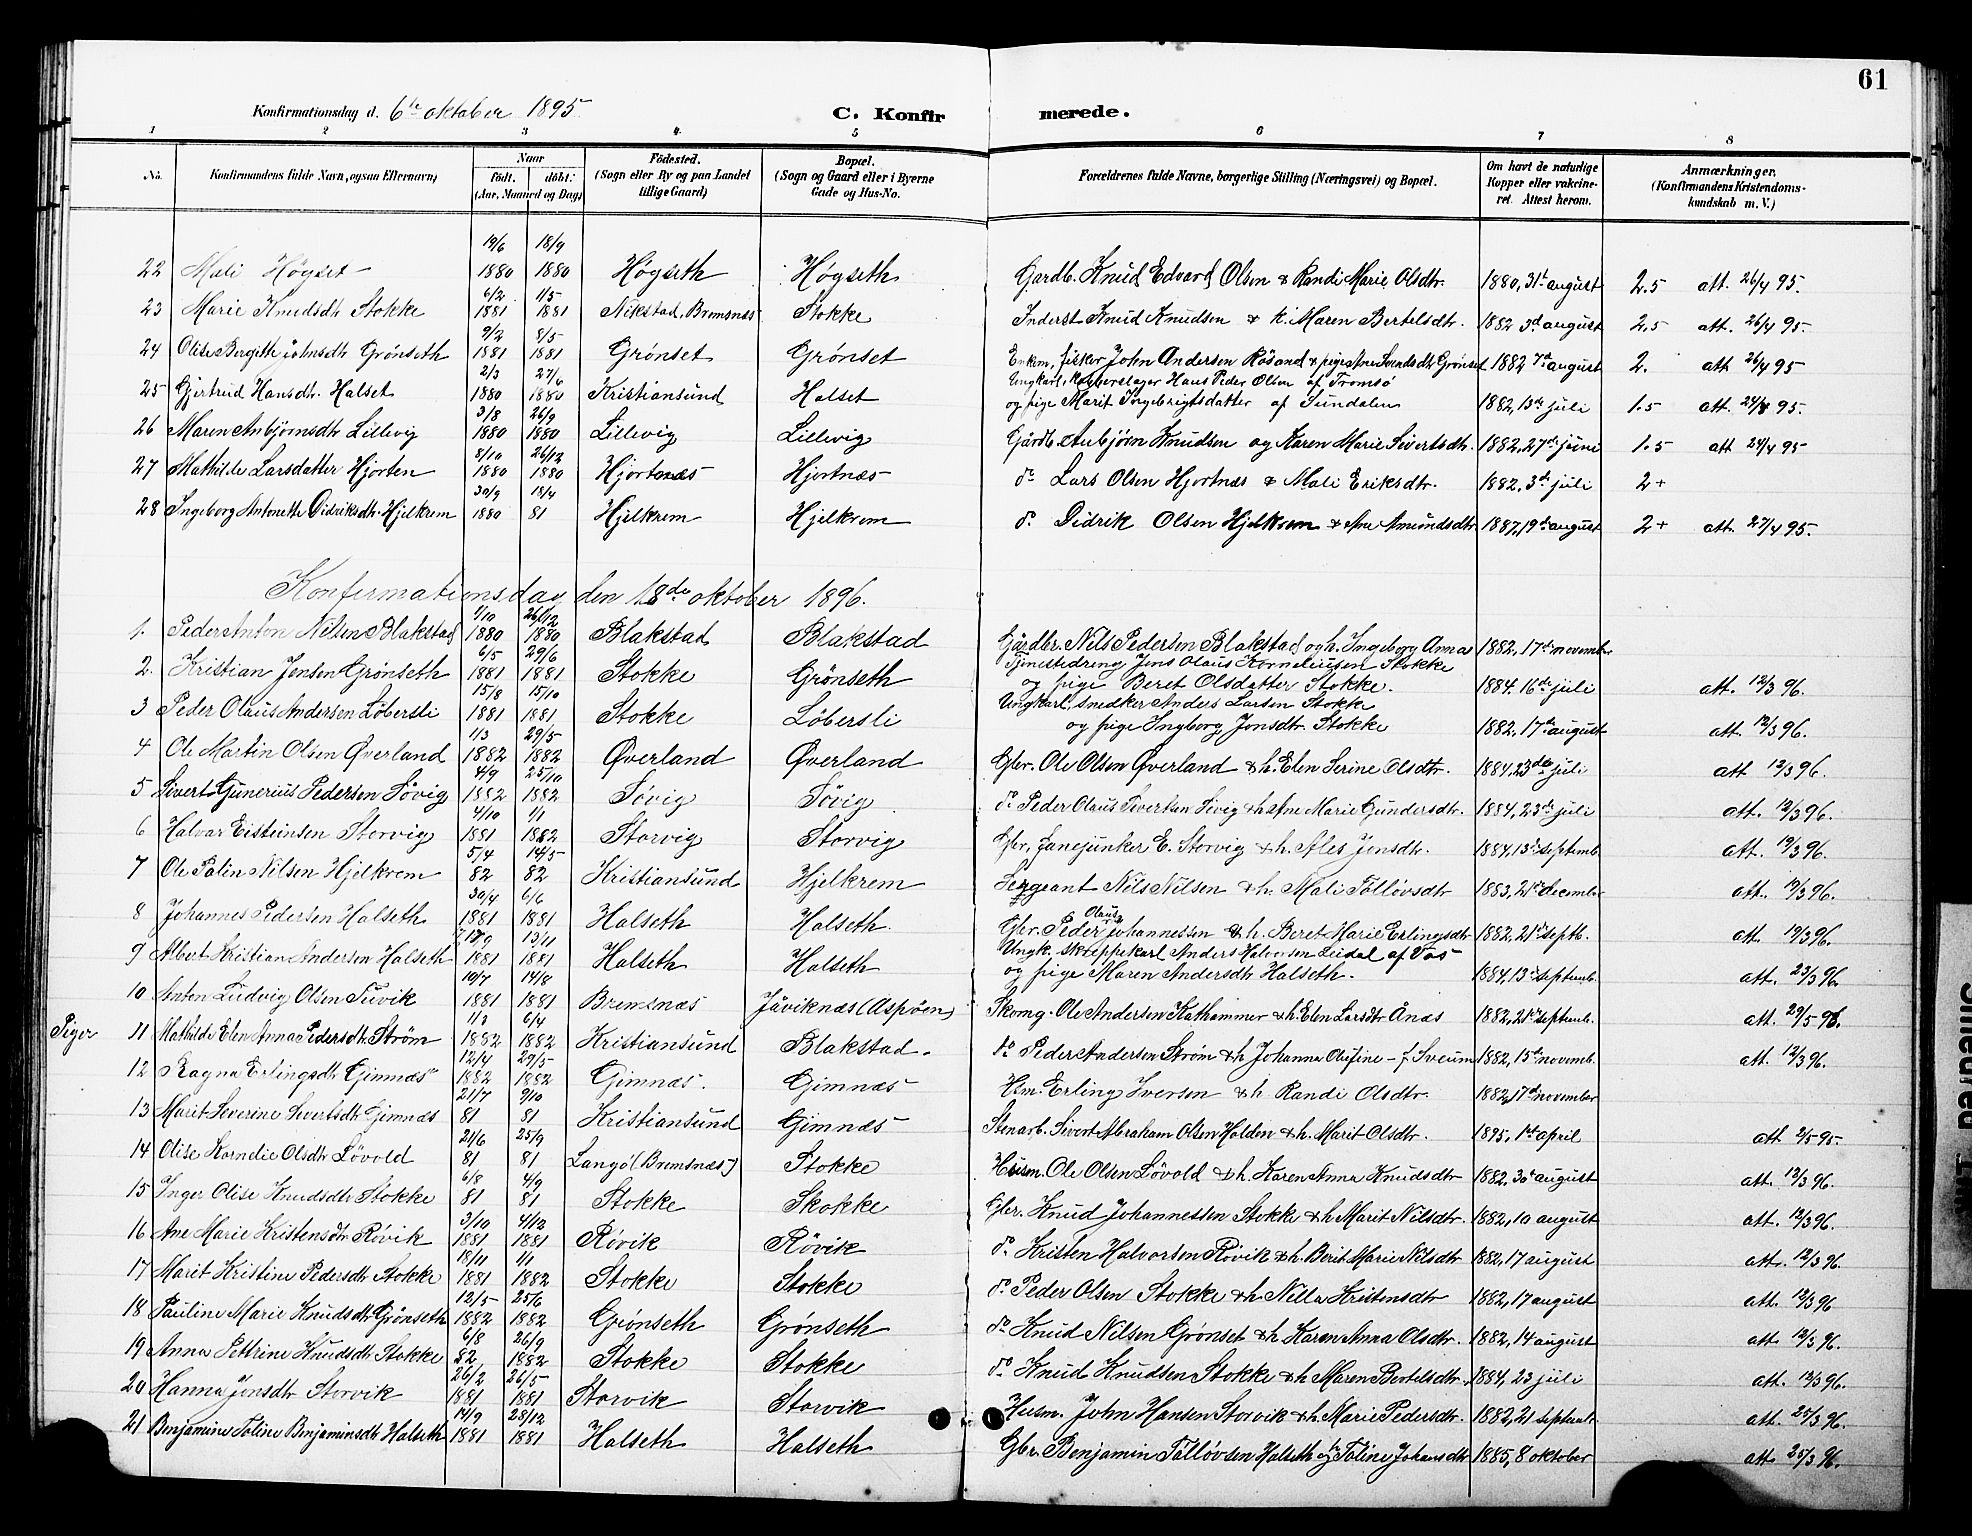 61
Konfirmationsdag d. 6te oktober 1895
C. Konfirmerede.
1 2 3 4 5 6 7 8
No. Konfirmandens fulde Navn, ogsaa Efternavn) Naar født. døbt. (Aar, Maaned og Dag) Fødested. (Sogn eller By og paa Landet tillige Gaard) Bopæl. (Sogn og Gaard eller i Byerne Gade og Hus-No. Forældrenes fulde Navne, borgerlige Stilling (Næringsvei) og Bopæl. Om havt de naturlige Kopper eller vakcineret. Attest herom. Anmærkninger. (Konfirmandens Kristendomskundskab m. V.)
22 Mali Høgset 19/6 1880 18/9 1880 Høgseth Høgseth Gardb. Knud Edvard Olsen & Randi Marie Olsdtr. 1880, 31te august 2.5 att. 26/4 95.
23 Marie Knudsdtr Stokke 6/2 1881 1/5 1881 Nikstad, Bremsnæs Stokke Inderst Knud Knudsen & k. Maren Bertelsdtr. 1882 3d august 2.5 att. 26/4 95.
24 Olise Bergitte Johnsdtr Grönseth 9/2 1881 8/5 1881 Grönset Grönset Enkm. fisker John Andersen Rösand & pige Ane Svendsdtr Grönset 1882 7d august 2. att 26/4 95
25 Gjertrud Hansdtr. Halset 2/3 1880 27/6 1880 Kristiansund Halset Ungkarl, Kobberslager Hans Peder Olsen af Tromsö
og pige Marit Ingebrigtsdatter af Sundalen 1882, 13de juli 1.5 att. 24/4 95.
26 Maren Anbjørnsdtr Lillevig 3/8 1880 26/9 1880 Lillevig Lillevig Gårdb. Anbjørn Knudsen og Karen Marie Sivertsdtr. 1882, 27de juni 1.5 att 24/4 95
27 Mathilde Larsdatter Hjorten 8/10 1880 26/12 1880 Hjortnæs Hjortnæs do Lars Olsen Hjortnæs & Mali Eriksdtr. 1882, 3d juli 2+
28 Ingeborg Antonette Didriksdtr. Hjelkrem 30/9 1880 18/4 81 Hjelkrem Hjelkrem do Didrik Olsen Hjelkrem & Ane Amundsdtr 1887, 19de august 2+ att. 27/4 95.
Konfirmationsdag den 18de oktober 1896.
1. Peder Anton Nilsen Blakstad 1/10 1880 26/12 1880 Blakstad Blakstad Gårdbr. Nils Pedersen Blakstad og h. Ingeborg Annas 1882, 17de novembr
2. Kristian Jensen Grönseth 6/5 1881 29/6 1881 Stokke Grönseth Tjenestedreng Jens Olaus Korneliusen Stokke
og pige Beret Olsdatter Stokke. 1884. 16de juli att. 12/3 96.
3 Peder Olaus Andersen Löbersli 15/8 1881 15/10 1881 Stokke Löbersli Ungkarl, snedker Anders Larsen Stokke
og pige Ingborg Jonsdtr. Stokke 1882, 17de august att. 12/3 96.
4 Ole Martin Olsen Øverland 1/3 1882 29/5 1882 Øverland Øverland Gbr. Ole Olsen Øverland & h. Elen Serine Olsdtr. 1884, 23de juli att 12/3 96.
5 Sivert Gunerius Pedersen Sövig 4/9 1882 25/10 1882 Sövig Sövig do Peder Olaus Sivertsen Sövig & h Ane Marie Gundersdtr. 1884, 23de juli att. 12/3 96.
6 Halvar Eisteinsen Storvig 4/10 1881 1/1 1882 Storvig Storvig Gbr. fanejunker E. Storvig & h. Ales Jensdtr. 1884, 13de septemb. att. 12/3 96.
7 Ole Palin Nilsen Hjelkrem 5/4 82 14/5 82 Kristiansund Hjelkrem Sergeant Nils Nilsen & h. Mali Tollövsdtr 1883, 21de december att. 12/3 96.
8 Johannes Pedersen Halseth 30/4 1881 6/6 1881 Halseth Halseth Gbr. Peder Olaus Johannessen & h. Beret Marie Erlingsdtr 1882, 21de septb. att. 12/3 96.
9 Albert Kristian Andersen Halseth 1881 13/11 1881 Halseth Halseth Ungk. skreppekarl Anders Halvorsen Leidal af Vos
og pige Maren Andersdtr Halseth. 1884, 13de septemb. att. 23/3 96.
10 Anton Ludvig Olsen Tuvik 10/7 1881 14/8 1881 Bremsnæs Jüviknæs (Aspöen) Skomg. Ole Andersen Kathammer & h. Elen Larsdtr Anæs 1882, 21de septemb. att. 29/5 96.
Piger 11 Mathilde Elen Anna Pedersdtr Ström 1/3 1882 6/4 1882 Kristiansund Blakstad do Peder Andersen Ström & h Johanna Olufine - f. Sveum 1882, 15de novemb. att. 12/3 96.
12 Ragna Erlingsdtr Gimnæs 12/4 1882 29/5 1882 Gimnæs. Gimnæs Hsm. Erling Iversen & h Randi Olsdtr. 1882, 17de november
13 Marit Severine Sivertsdtr Gimnæs 21/7 81 9/10 81 Kristiansund Gimnæs Stenarb. Sivert Abraham Olsen Holden & h. Marit Olsdtr. 1895, 1st april att 2/5 95.
14 Olise Kornelie Olsdtr Lövold 21/6 81 25/9 81 Langö (Bremsnæs) Stokke Husm. Ole Olsen Lövold & h. Karen Anna Knudsdtr 1882, 30 august att. 12/3 96.
15 Inger Olise Knudsdtr Stokke 6/8 81 4/9 81 Stokke Skokke Gbr. Knud Johannessen Stokke & h Marit Nilsdtr. 1882, 10 august att. 12/3 96.
16 Ane Marie Kristensdtr Rövik 3/10 1881 4/12 1881 Rövik Rövik do Kristen Halvorsen Rövik & h. Berit Marie Nilsdtr 1882, 17 august att. 12/3 96.
17 Marit Kristine Pedersdtr Stokke 18/11 1881 1/1 1882 Stokke Stokke do Peder Olsen Stokke & h Nilla Kristensdtr 1882, 17 august att. 12/3 96
18 Pauline Marie Knudsdtr Grönseth 12/5 1882 25/6 1882 Grönseth Grönseth do Knud Nilsen Grönset & h Karen Anna Olsdtr. 1882, 14 august att 12/3 96.
19 Anna Pettrine Knudsdtr Stokke 6/8 82 26/9 1882 Stokke Stokke do Knud Knudsen Stokke & h Maren Bertelsdtr. 1884, 23 juli att. 12/3 96.
20 Hanna Jonsdtr Storvik 26/2 1881 26/5 1881 Storvik Storvik Husm. John Hansen Storvik & h Marie Pedersdtr. 1882, 21 septemb. att. 25/3 96.
21 Benjamine Toline Benjaminsdtr Halseth 14/9 1881 28/12 1881 Halseth Halseth Gbr. Benjamin Tollövsen Halseth og Toline Johansdtr 1885, 8 oktober att. 25/3 96.